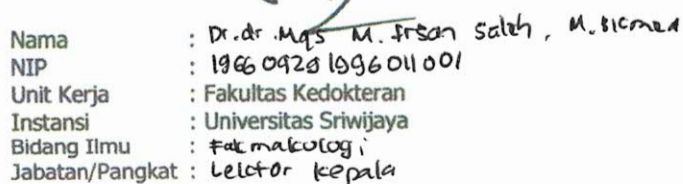 Nama : Dr.dr.Mgs M. Irsan Saleh, M.Biomed
NIP : 196609291996011001
Unit Kerja : Fakultas Kedokteran
Instansi : Universitas Sriwijaya
Bidang Ilmu : Farmakologi
Jabatan/Pangkat : Lektor kepala